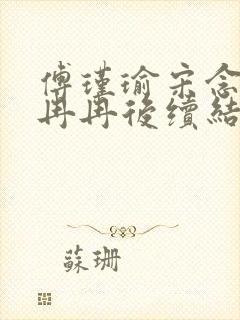 傅瑾瑜宋念
冉冉後續結
蘇珊